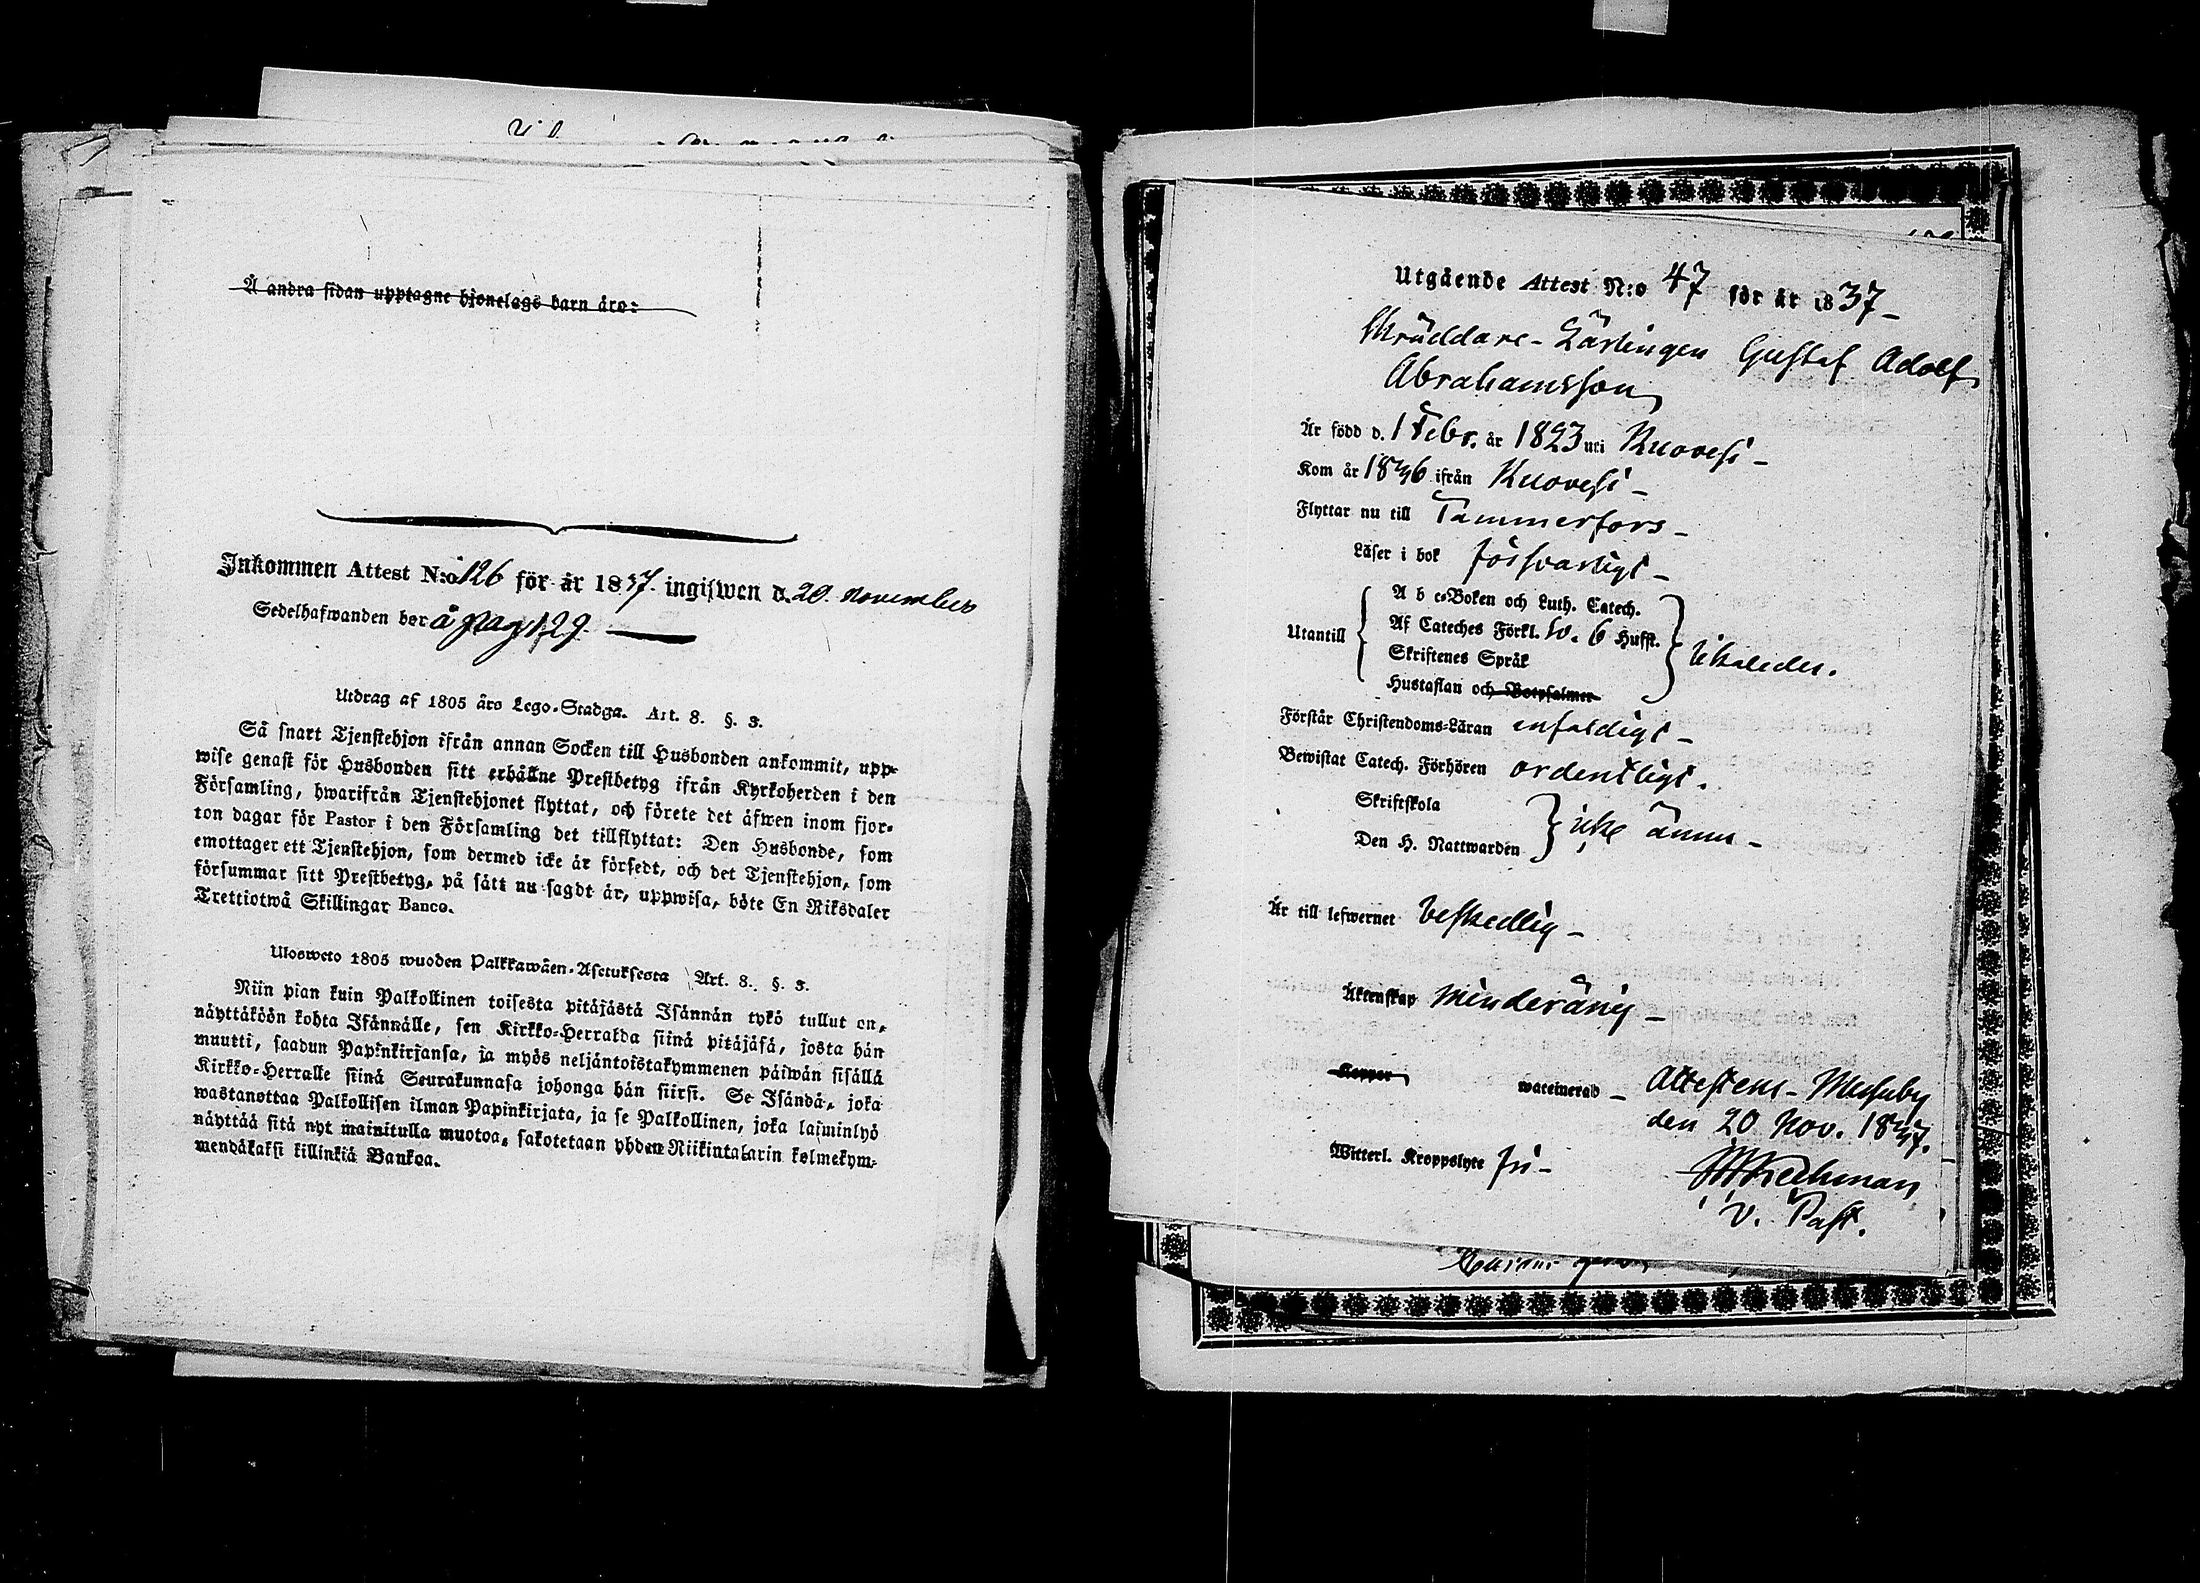 Å andra sidan upptagne hjonelags barn äro:
Inkommen Attest N:o 126 för år 1837. ingifwen d. 20. November
Sedelhafwanden bor å pag 129.
Utdrag af 1805 års Lego-Stadga. Art. 8. §. 3.
Så snart Tjenstehjon ifrån annan Socken till Husbonden ankommit, upp-
wise genast för Husbonden sitt erhållne Prestbetyg ifrån Kyrkoherden i den
Församling, hwarifrån Tjenstehjonet flyttat, och förete det äfwen inom fjor-
ton dagar för Pastor i den Församling det tillflyttat: Den Husbonde, som
emottager ett Tjenstehjon, som dermed icke är försedt, och det Tjenstehjon, som
försummar sitt Prestbetyg, på sätt nu sagdt är, uppwisa, böte En Riksdaler
Trettiotwå Skillingar Banco.
Uloswето 1805 wuoden Palkkawäen-Asetuksesta Art. 8. §. 3.
Niin pian kuin Palkollinen toisesta pitäjästä Isännän tykö tullut on,
näyttäköön kohta Isännälle, sen Kirkko-Herralda siinä pitäjäsä, josta hän
muutti, saadun Papinkirjansa, ja myös neljäntoistakymmenen päiwän sisällä
Kirkko-Herralle siinä Seurakunnasa johonga hän siirsi. Se Isändä, joka
wastanottaa Palkollisen ilman Papinkirjata, ja se Palkollinen, joka laiminlyö
näyttää sitä nyt mainitulla muotoa, sakotetaan yhden Riikintalarin kolmekym-
mendäkaksi killinkiä Bankoa.
Utgående Attest N:o 47 för år 1837
Skräddare-Lärlingen Gustaf Adolf
Abrahamsson
Är född d. 1 Febr. år 1823 uti Ruovesi
Kom år 1836 ifrån Ruovesi
Flyttar nu till Tammerfors
Läser i bok försvarligt
A b c-Boken och Luth. Catech.
Af Cateches Förkl. 6 Hufst.
Utantill
Skriftenes Språk
Hustaflan och Botpsalmer
Förstår Christendoms-Läran enfaldigt
Bewistat Catech. Förhören ordentligt.
Skriftskola
icke ännu
Den H. Nattwarden
Är till lefwernet beskedlig
Äktenskap minderårig
Koppor waccinerad Attestens- Messuby
den 20 Nov. 1837.
Witterl. Kroppslyte fri
v. Past.